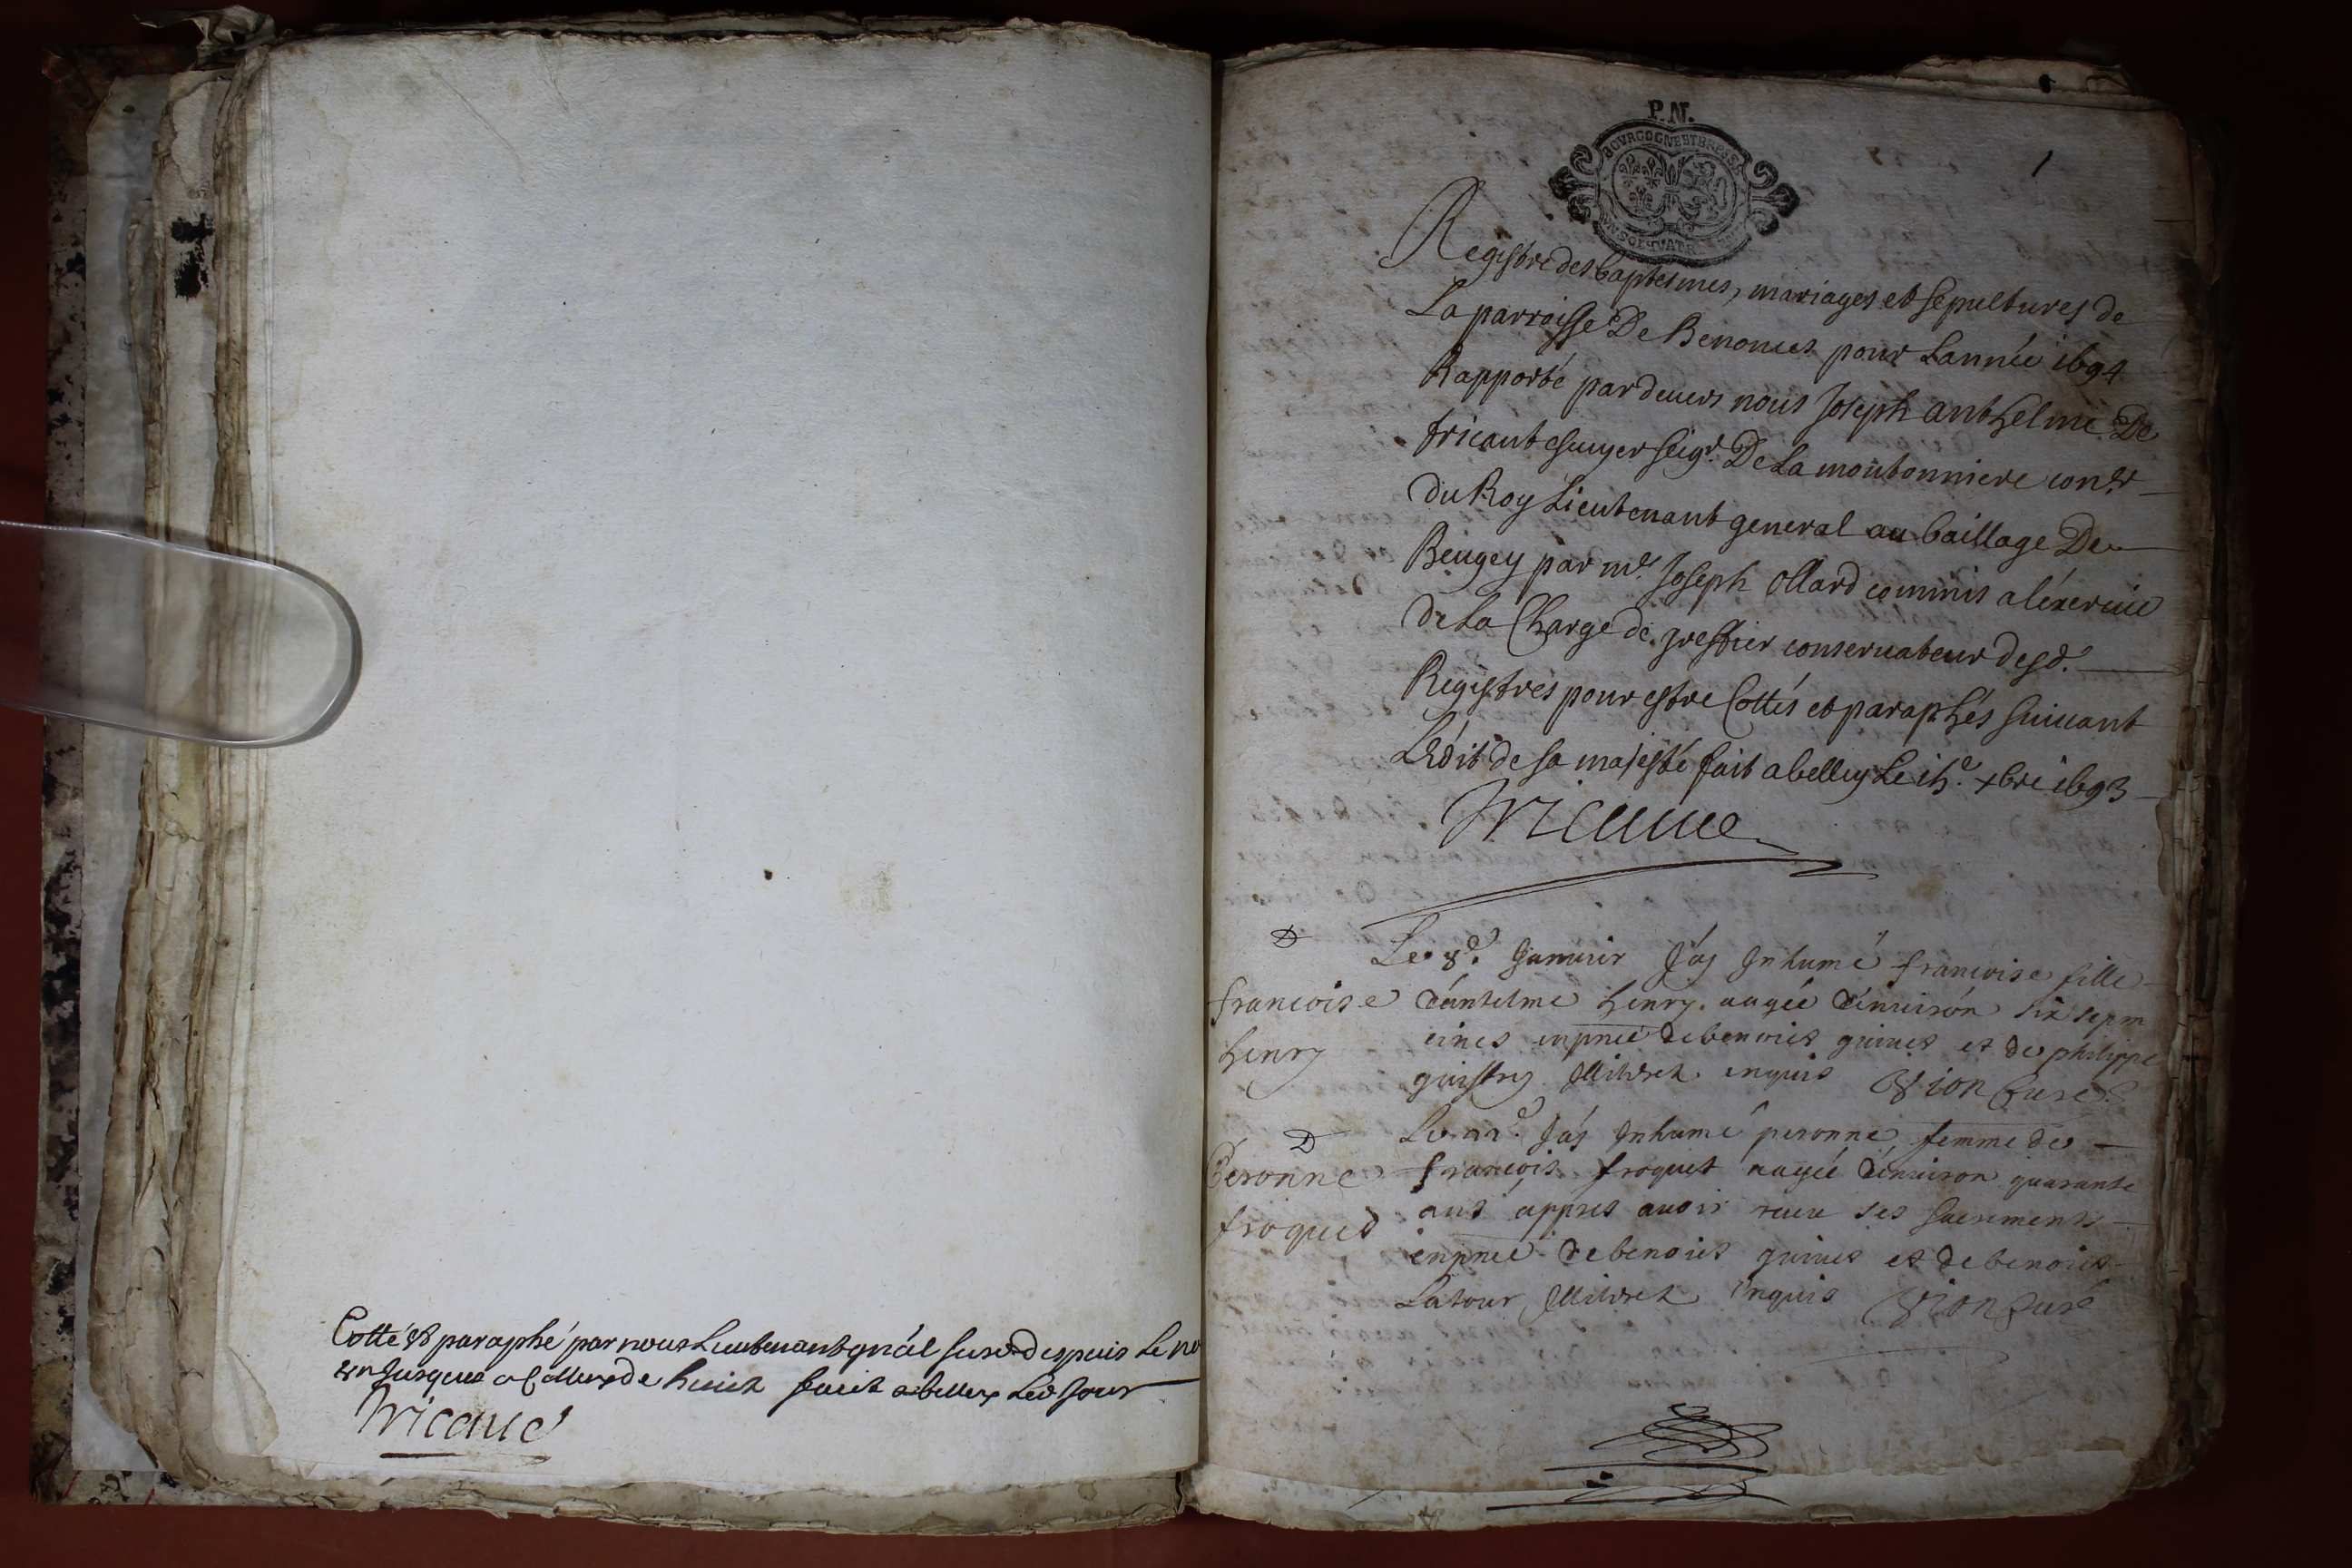 Cotté & paraphé par nous Lieutenant gnâl susd despuis Le no
un Jusques a Celluy de huict faict a belley Led Jour
Tricaud
P.N.
BOURGOGNE ET BRESSE
1
Registre des baptesmes, mariages et sepultures de
La parroisse De Benonces pour Lannée 1694
Rapporté pardevers nous Joseph anthelme De
tricaut escuyer seigr. De La moutonniere conler
Du Roy Lieutenant general au baillage De
Beugey par me. Joseph Ollard commis a léxercice
De La Charge de greffier conservateur desd.
Registres pour estre Cottés et paraphés suivant
LEdit de sa majesté fait a belley Le 15e. xbre 1693
Tricaud
D
francoise
henry
Le 8e. Janvier Jáy Inhumé francoise fille
dántelme henry aagée dénvirón six sepm
eines enpnce de benoict guinet et de philippe
guistry Illitrez enquis Vion Curé
D
Peronne
froquet
Le 22e. Jáy Inhumé peronne femme de
francois froquet aagée dénviron quarante
ans áppres avoir receu ses sacrements
enpnce de benoict guinet et de benoict
Latour Illitrez Enquis Vion Curé